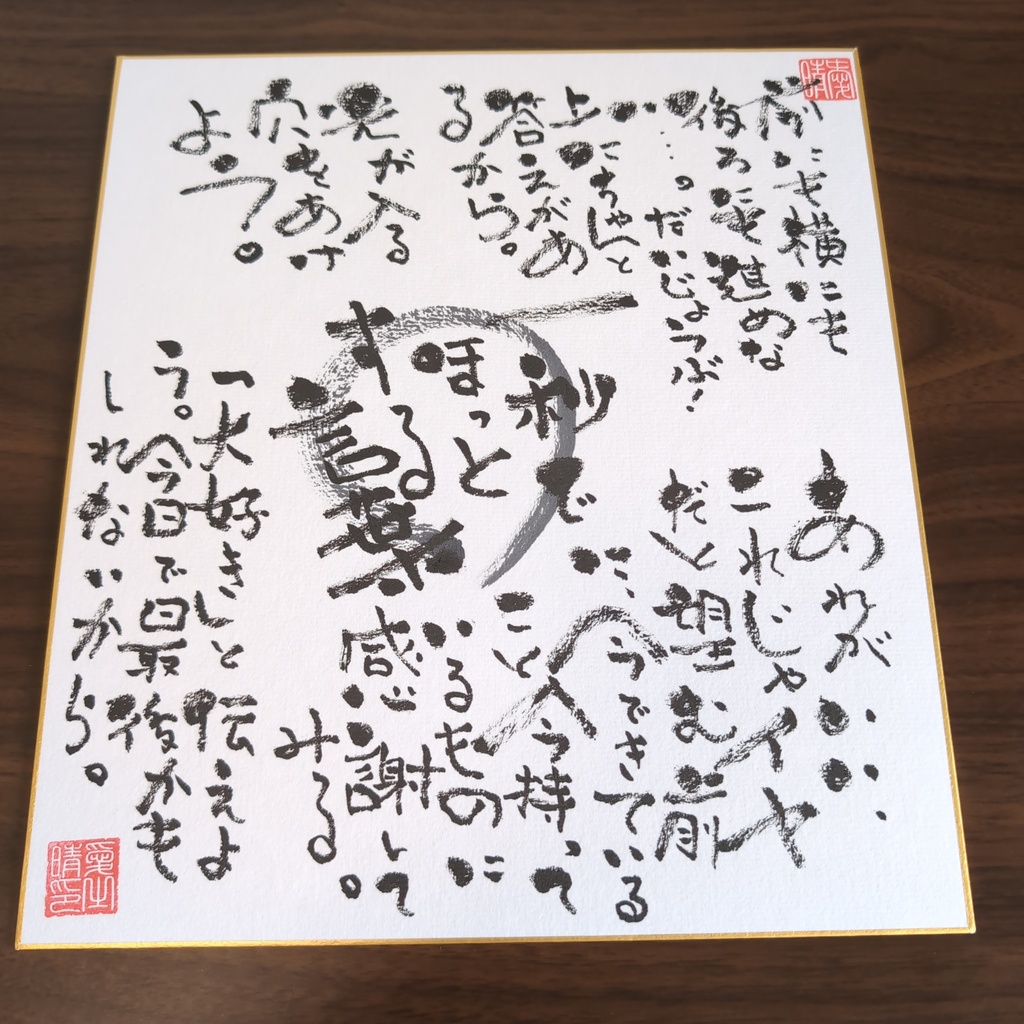 前にも横にも
後ろにも進めな
い…。だいじょうぶ！
上にちゃんと
答えがあ
るから。
光が入る
穴をあけ
よう。
秒で
ほっと
する
言葉
あれがいい、
これじゃイヤ
だと望む前
に、今できている
こと今持って
いるものに
感謝して
みる。
「大好き」と伝えよ
う。今日で最後かも
しれないから。